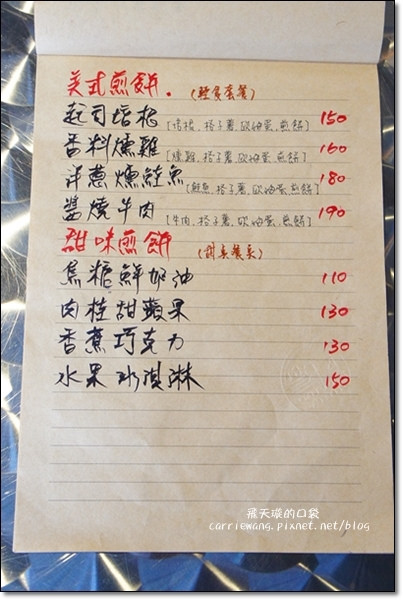 美式煎餅. (輕食套餐)
起司培根 [培根.格子薯.歐姆蛋.煎餅] 150
香料燻雞 [燻雞.格子薯.歐姆蛋.煎餅] 160
洋蔥燻鮭魚 [鮭魚.格子薯.歐姆蛋.煎餅] 180
醬燒牛肉 [牛肉.格子薯.歐姆蛋.煎餅] 190
甜味煎餅 (甜點餐點)
焦糖鮮奶油 110
肉桂甜蘋果 130
香蕉巧克力 130
水果冰淇淋 150
飛天璇的口袋
carriewang.pixnet.net/blog